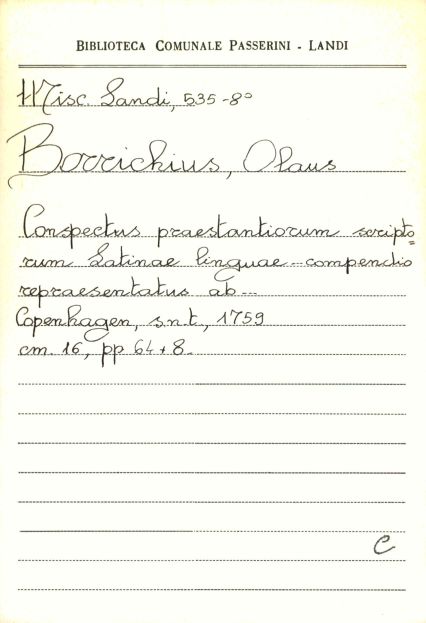 BIBLIOTECA COMUNALE PASSERINI - LANDI
Misc. Landi, 535-8º
Borrichius, Olaus
Conspectus praestantiorum scripto=
rum Latinae linguae -- compendio
repraesentatus ab --
Copenhagen, s.n.t., 1759
cm. 16, pp 64+8.
C